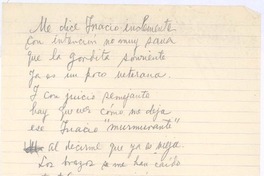 Me dice Ignacio inclemente
con intención no muy sana
que la gordita sonriente
ya es un poco veterana.
Y con juicio semejante
hay que ver cómo me deja
ese Ignacio "murmurante"
Al decirme que ya es vieja
Los brazos se me han caído